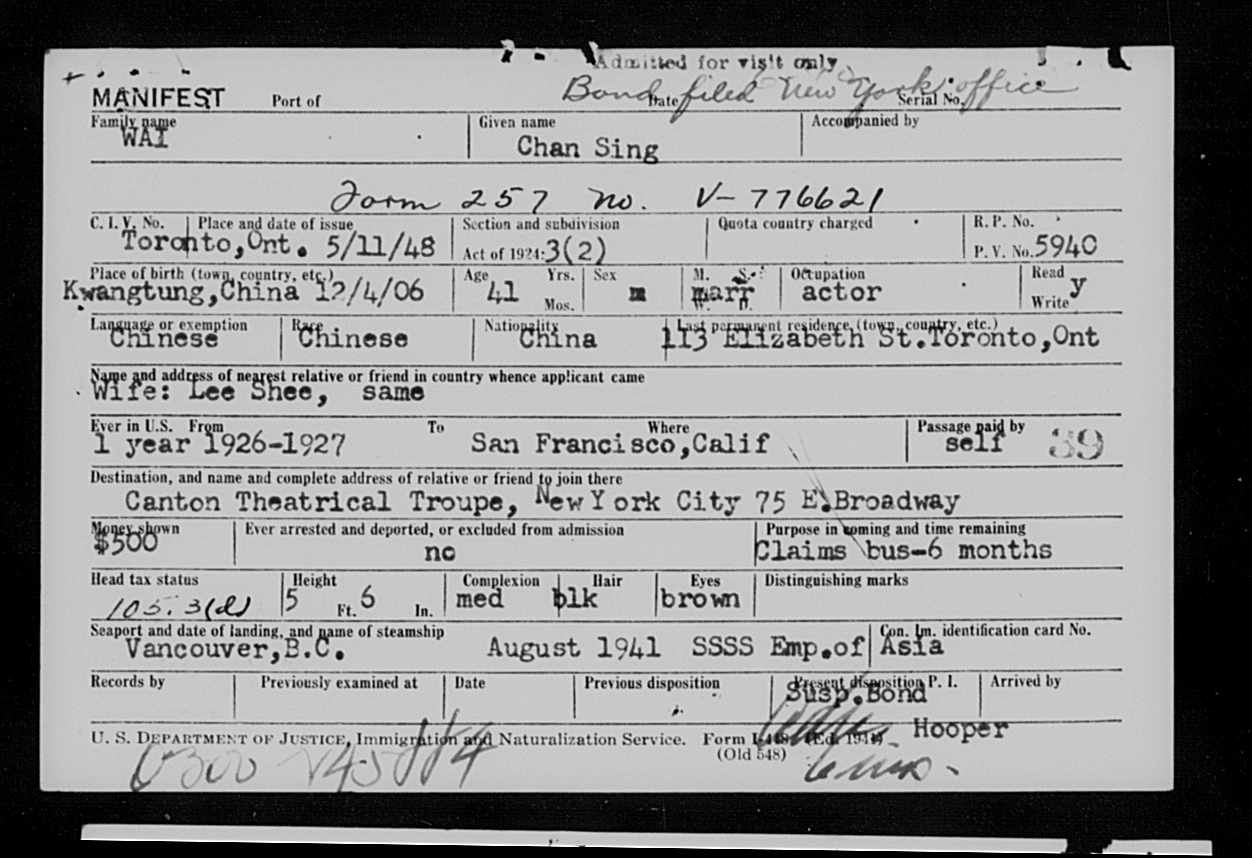 Admitted for visit only
Bond filed New York office
MANIFEST Port of Date Serial No.
Family name Given name Accompanied by
WAI Chan Sing
Form 257 no. V-776621
C. I. V. No. Place and date of issue Section and subdivision Quota country charged R. P. No.
Toronto,Ont. 5/11/48 Act of 1924: 3(2) P. V. No. 5940
Place of birth (town, country, etc.) Age Yrs. Sex M. S. Occupation Read
Kwangtung,China 12/4/06 41 Mos. m marr W. D. actor Write y
Language or exemption Race Nationality Last permanent residence, (town, country, etc.)
Chinese Chinese China 113 Elizabeth St.Toronto,Ont
Name and address of nearest relative or friend in country whence applicant came
Wife: Lee Shee, same
Ever in U.S. From To Where Passage paid by
1 year 1926-1927 San Francisco,Calif self 39
Destination, and name and complete address of relative or friend to join there
Canton Theatrical Troupe, New York City 75 E.Broadway
Money shown Ever arrested and deported, or excluded from admission Purpose in coming and time remaining
$500 no Claims bus-6 months
Head tax status Height Complexion Hair Eyes Distinguishing marks
105.3(d) 5 Ft. 6 In. med blk brown
Seaport and date of landing, and name of steamship Con. Im. identification card No.
Vancouver,B.C. August 1941 SSSS Emp.of Asia
Records by Previously examined at Date Previous disposition Present disposition P. I. Arrived by
Susp.Bond
Hooper
U. S. DEPARTMENT OF JUSTICE, Immigration and Naturalization Service. Form
(Old 548)
0300